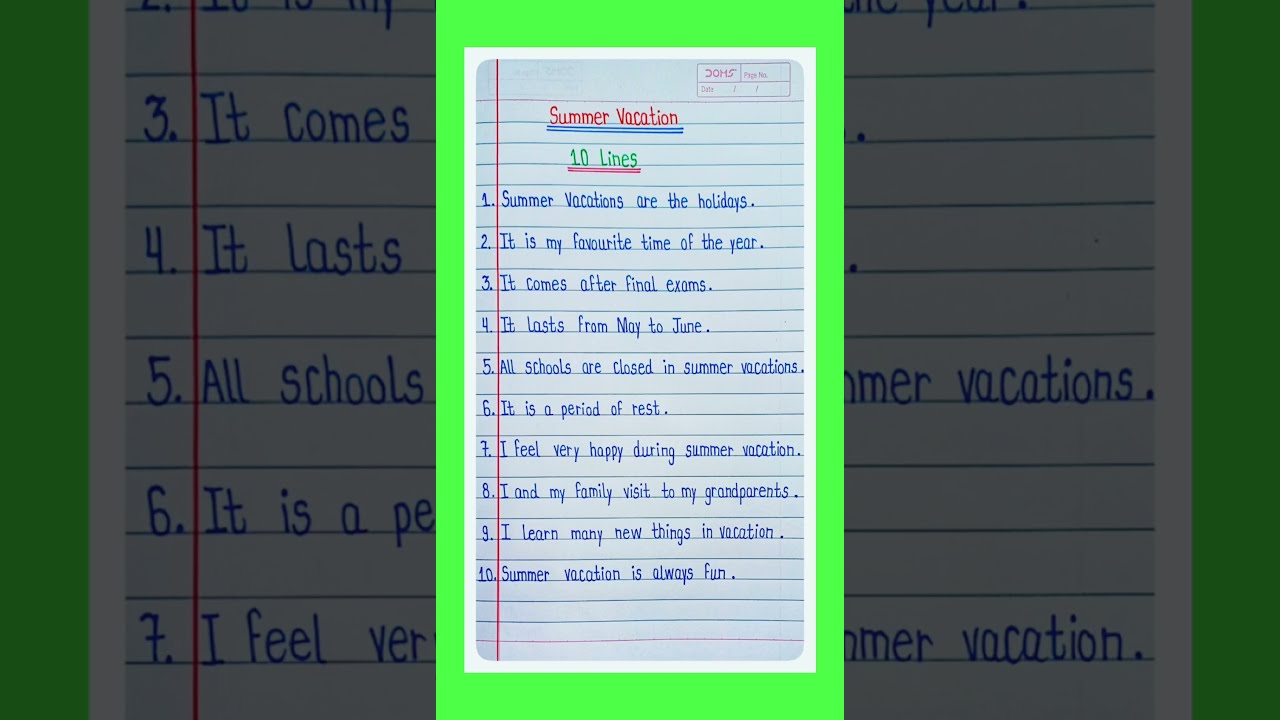 DOMS Page No.
Date / /
Summer Vacation
10 Lines
1. Summer Vacations are the holidays.
2. It is my favourite time of the year.
3. It comes after final exams.
4. It lasts from May to June.
5. All schools are closed in summer vacations.
6. It is a period of rest.
7. I feel very happy during summer vacation.
8. I and my family visit to my grandparents.
9. I learn many new things in vacation.
10. Summer vacation is always fun.
3. It comes
4. It lasts
5. All schools
6. It is a pe
7. I feel ver
year.
mer vacations.
mer vacation.